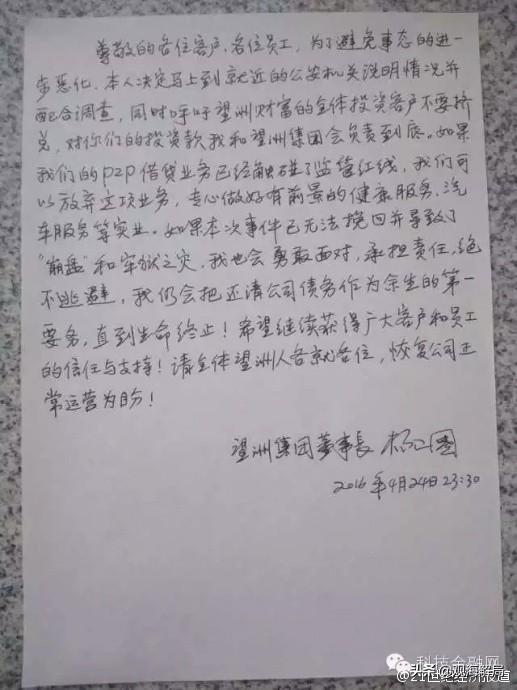 尊敬的各位客户、各位员工，为了避免事态的进一
步恶化，本人决定马上到就近的公安机关说明情况并
配合调查，同时呼吁望洲财富的全体投资客户不要挤
兑，对你们的投资款我和望洲集团会负责到底。如果
我们的P2P借贷业务已经触碰了监管红线，我们可
以放弃这项业务，专心做好有前景的健康服务、汽
车服务等实业。如果本次事件已无法挽回并导致了
“崩盘”和牢狱之灾，我也会勇敢面对，承担责任，绝
不逃避，我仍会把还清公司债务作为余生的第一
要务，直到生命终止！希望继续获得广大客户和员工
的信任与支持！请全体望洲人各就各位，恢复公司正
常运营为盼！
望洲集团董事长 杨卫国
2016年4月24日23:30
科技金融网
头条@观海解局
@21世纪经济报道